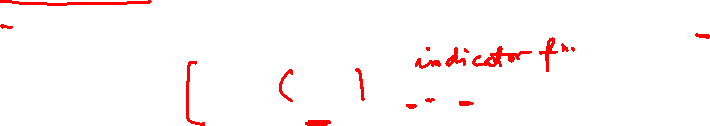 [ ( _ ) indicator fn.